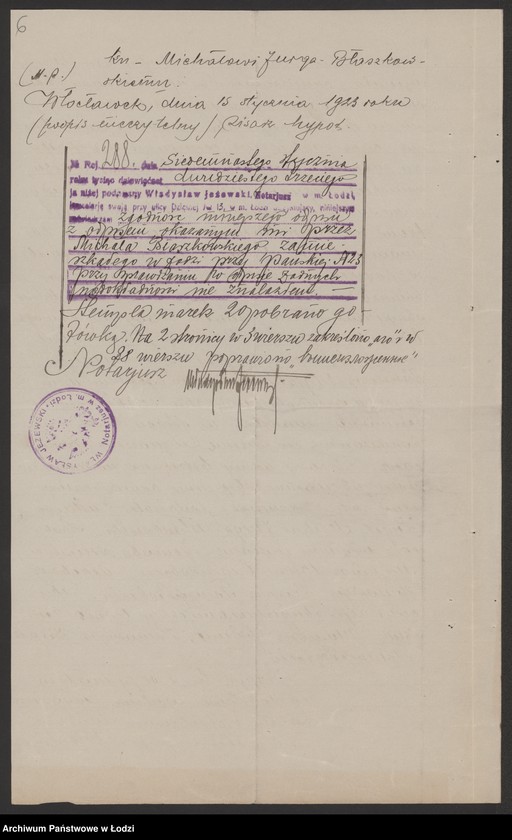 6
kn - Michałowi Jurga - Błaszkow-
skiemu.
(m.p.)
Włocławek, dnia 15 stycznia 1923 roku
(podpis nieczytelny) Pisarz hypot.
№ Rej. 288. dnia Siedemnastego stycznia
roku tysiąc dziewięćset dwudziestego trzeciego
ja niżej podpisany Władysław Jeżewski, Notarjusz w m. Łodzi,
kancelarję swoją przy ulicy w m. Łodzi niniejszym
zgodność niniejszego odpisu
z odpisem okazanym mi przez
Michała Błaszkowskiego zamie-
szkałego w Łodzi przy Pańskiej №
przy sprawdzaniu żadnych
nie znalazłem. —
Stempla marek 20 pobrano go-
tówką. Na 2 stronicy w 3 wierszu zakreślono w
28 wierszu poprawiono
Notarjusz
WŁADYSŁAW JEŻEWSKI • Notarjusz w m. Łodzi
Archiwum Państwowe w Łodzi